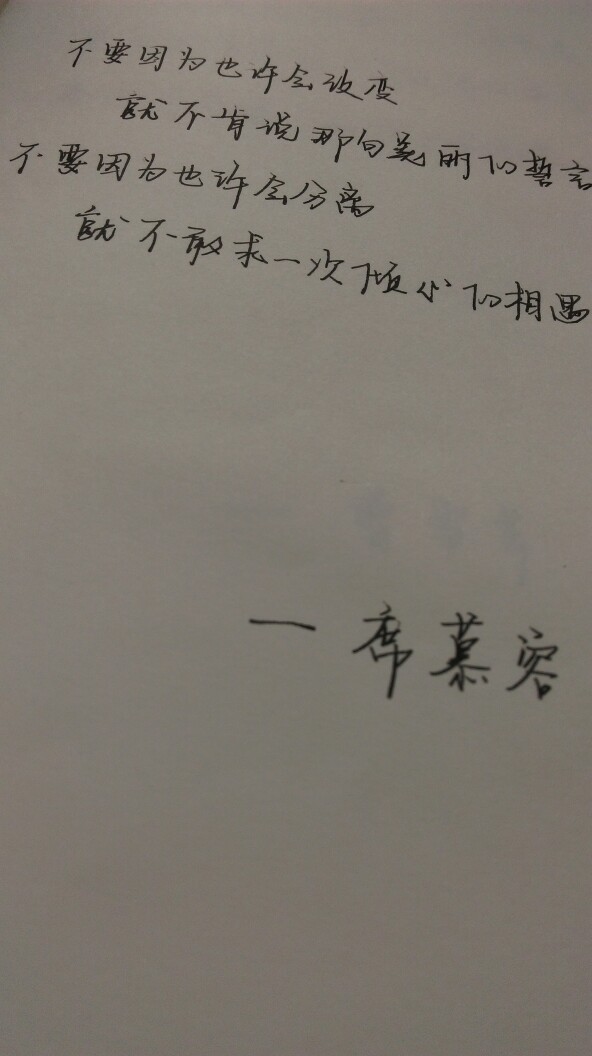 不要因为也许会改变
就不肯说那句美丽的誓言
不要因为也许会分离
就不敢求一次倾心的相遇
一席慕容